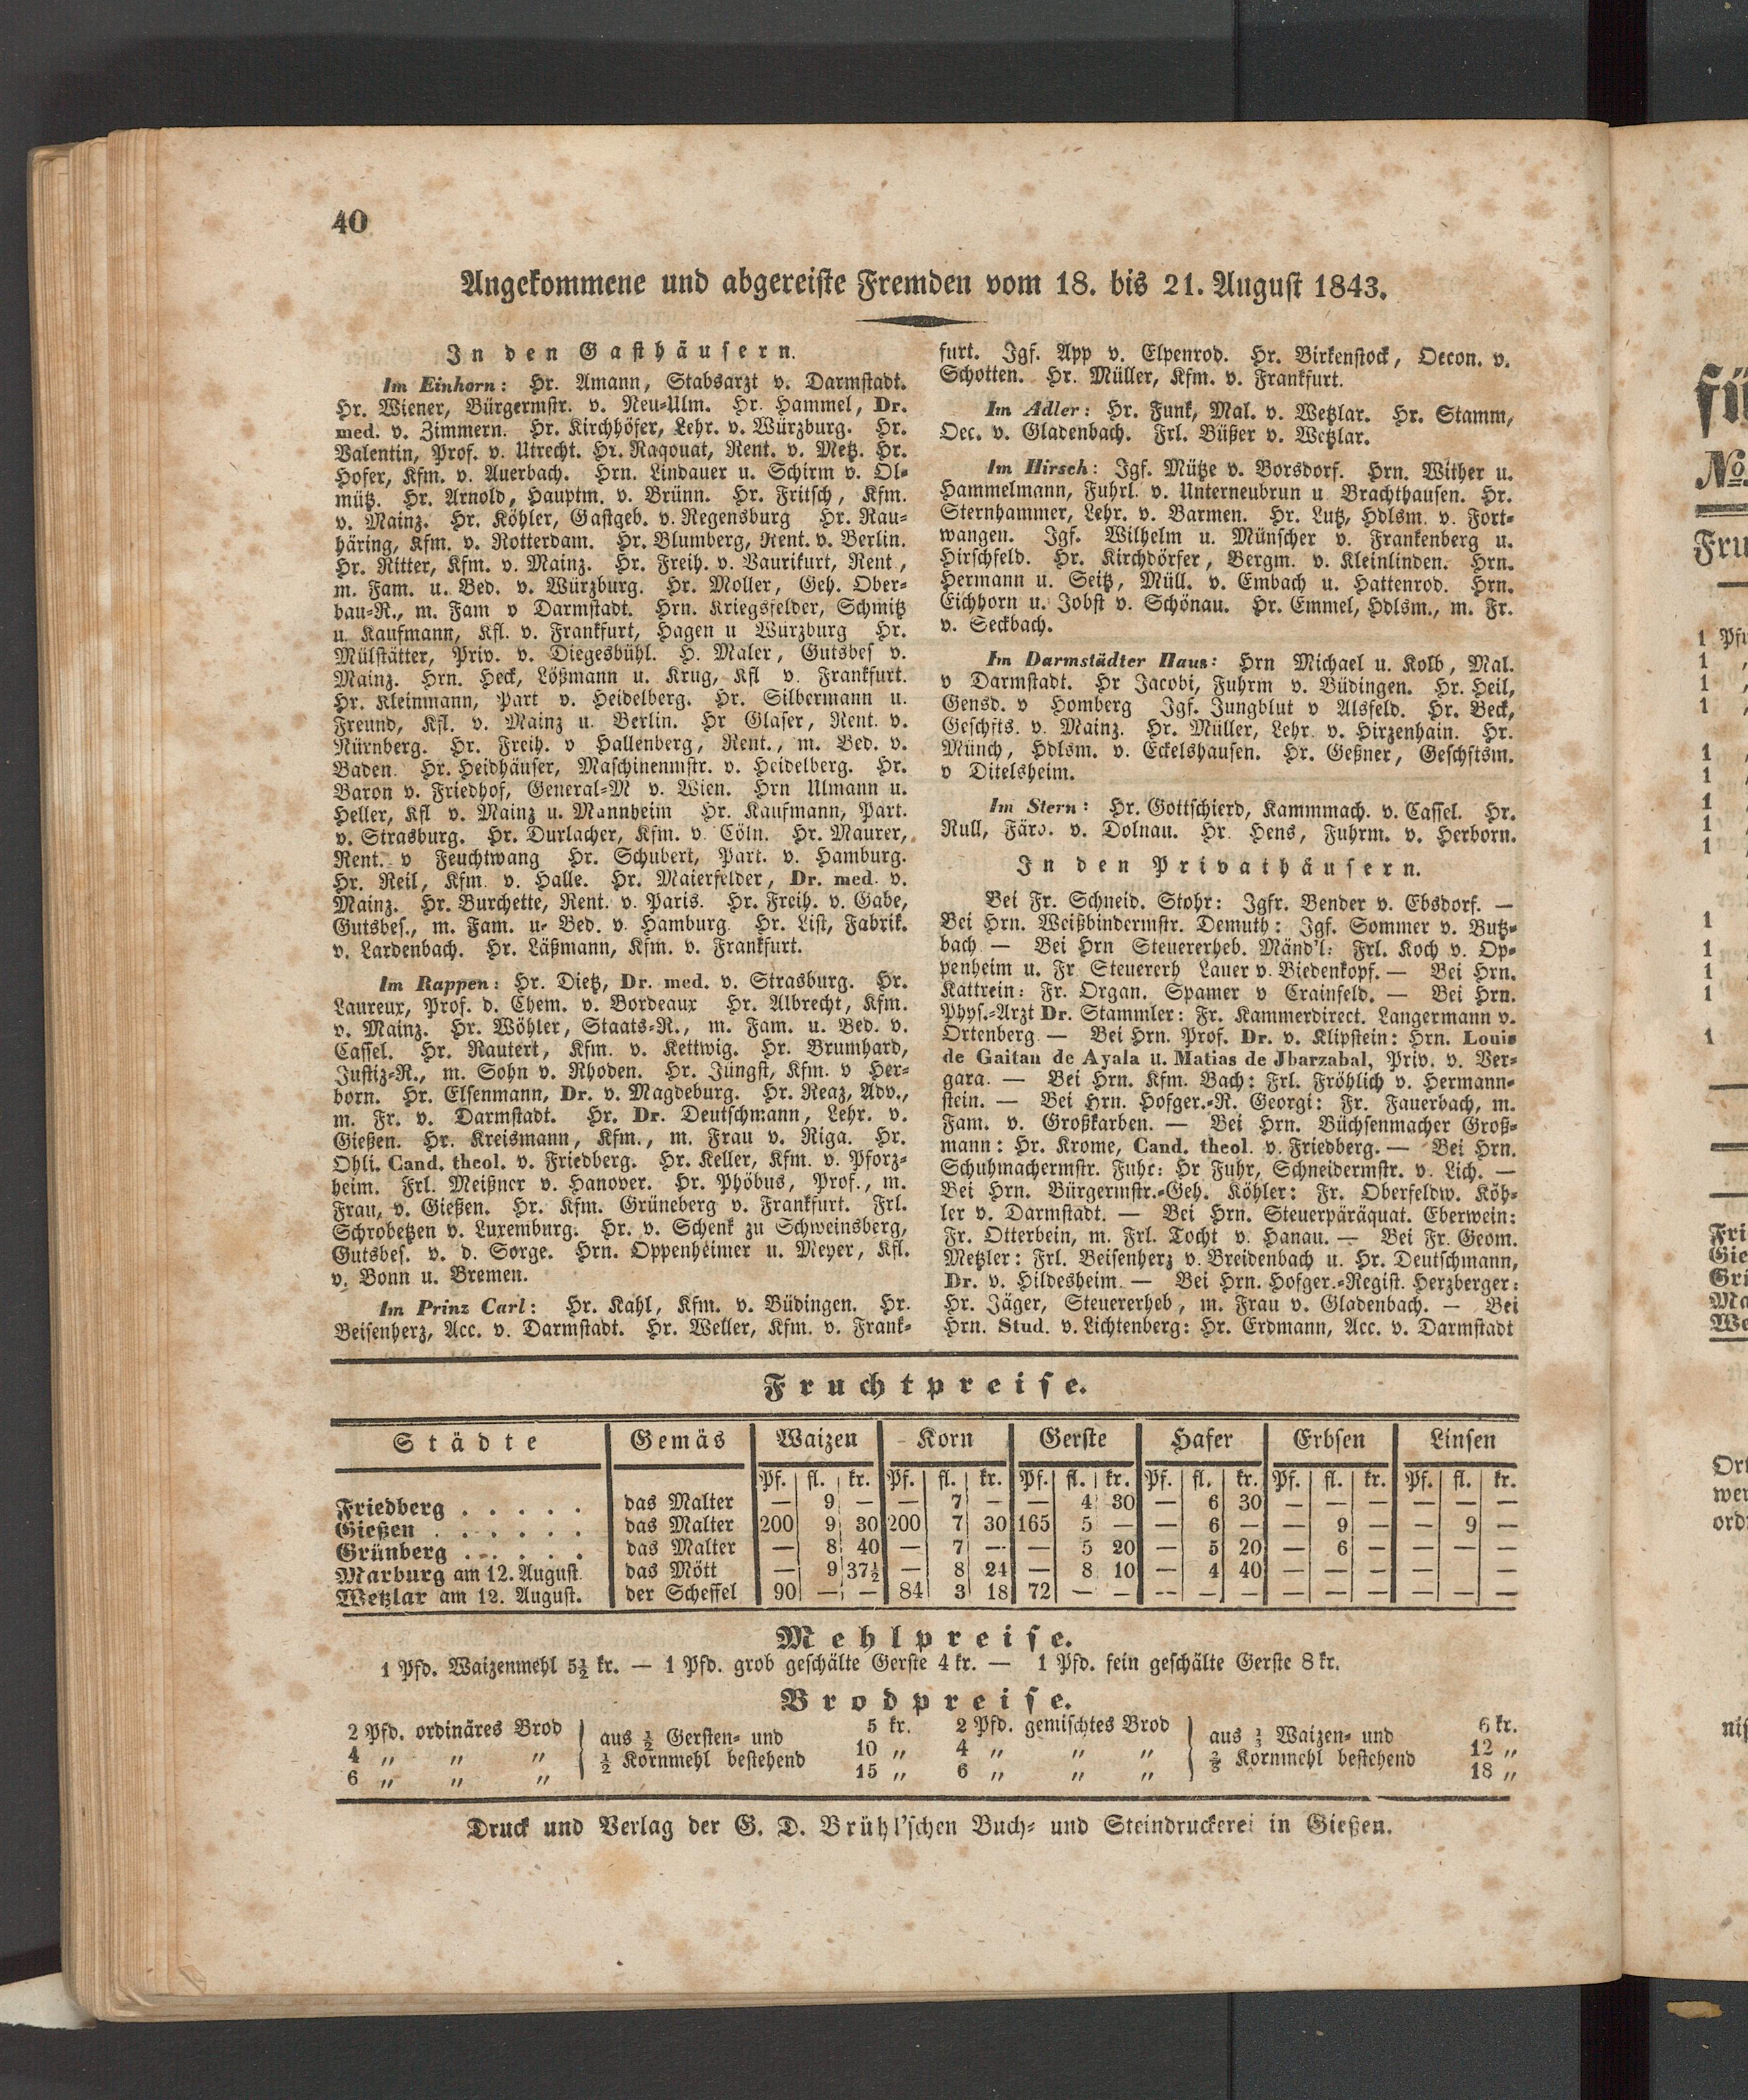 40
Angekommene und abgereiste Fremden vom 18. bis 21. August 1843.
In den Gasthäusern.
Im Einhorn: Hr. Amann, Stabsarzt v. Darmstadt.
Hr. Wiener, Bürgermstr. v. Neu-Ulm. Hr. Hammel, Dr.
med. v. Zimmern. Hr. Kirchhöfer, Lehr. v. Würzburg. Hr.
Valentin, Prof. v. Utrecht. Hr. Raqouat, Rent. v. Metz. Hr.
Hofer, Kfm. v. Auerbach. Hrn. Lindauer u. Schirm v. Ol-
mütz. Hr. Arnold, Hauptm. v. Brünn. Hr. Fritsch, Kfm.
v. Mainz. Hr. Köhler, Gastgeb. v. Regensburg Hr. Rau-
häring, Kfm. v. Rotterdam. Hr. Blumberg, Rent. v. Berlin.
Hr. Ritter, Kfm. v. Mainz. Hr. Freih. v. Vaurikurt, Rent,
m. Fam. u. Bed. v. Würzburg. Hr. Moller, Geh. Ober-
bau-R., m. Fam v Darmstadt. Hrn. Kriegsfelder, Schmitz
u. Kaufmann, Kfl. v. Frankfurt, Hagen u Würzburg Hr.
Mülstätter, Priv. v. Diegesbühl. H. Maler, Gutsbes v.
Mainz. Hrn. Heck, Lößmann u. Krug, Kfl v. Frankfurt.
Hr. Kleinmann, Part v. Heidelberg. Hr. Silbermann u.
Freund, Kfl. v. Mainz u. Berlin. Hr Glaser, Rent. v.
Nürnberg. Hr. Freih. v Hallenberg, Rent., m. Bed. v.
Baden. Hr. Heidhäuser, Maschinenmstr. v. Heidelberg. Hr.
Baron v. Friedhof, General-M v. Wien. Hrn Ulmann u.
Heller, Kfl v. Mainz u. Mannheim Hr. Kaufmann, Part.
v. Strasburg. Hr. Durlacher, Kfm. v. Cöln. Hr. Maurer,
Rent. v Feuchtwang Hr. Schubert, Part. v. Hamburg.
Hr. Reil, Kfm. v. Halle. Hr. Maierfelder, Dr. med. v.
Mainz. Hr. Burchette, Rent. v. Paris. Hr. Freih. v. Gabe,
Gutsbes., m. Fam. u. Bed. v. Hamburg. Hr. List, Fabrik.
v. Lardenbach. Hr. Läßmann, Kfm. v. Frankfurt.
Im Rappen: Hr. Dietz, Dr. med. v. Strasburg. Hr.
Laureux, Prof. d. Chem. v. Bordeaux Hr. Albrecht, Kfm.
v. Mainz. Hr. Wöhler, Staats-R., m. Fam. u. Bed. v.
Cassel. Hr. Rautert, Kfm. v. Kettwig. Hr. Brumhard,
Justiz-R., m. Sohn v. Rhoden. Hr. Jüngst, Kfm. v Her-
born. Hr. Elsenmann, Dr. v. Magdeburg. Hr. Reaz, Adv.,
m. Fr. v. Darmstadt. Hr. Dr. Deutschmann, Lehr. v.
Gießen. Hr. Kreismann, Kfm., m. Frau v. Riga. Hr.
Ohli. Cand. theol. v. Friedberg. Hr. Keller, Kfm. v. Pforz-
heim. Frl. Meißner v. Hanover. Hr. Phöbus, Prof., m.
Frau, v. Gießen. Hr. Kfm. Grüneberg v. Frankfurt. Frl.
Schrobetzen v. Luxemburg. Hr. v. Schenk zu Schweinsberg,
Gutsbes. v. d. Sorge. Hrn. Oppenheimer u. Meyer, Kfl.
v. Bonn u. Bremen.
Im Prinz Carl: Hr. Kahl, Kfm. v. Büdingen. Hr.
Beisenherz, Acc. v. Darmstadt. Hr. Weller, Kfm. v. Frank-
furt. Igf. App v. Elpenrod. Hr. Birkenstock, Oecon. v.
Schotten. Hr. Müller, Kfm. v. Frankfurt.
Im Adler: Hr. Funk, Mal. v. Wetzlar. Hr. Stamm,
Oec. v. Gladenbach. Frl. Büßer v. Wetzlar.
Im Hirsch: Igf. Mütze v. Borsdorf. Hrn. Wither u.
Hammelmann, Fuhrl. v. Unterneubrun u Brachthausen. Hr.
Sternhammer, Lehr. v. Barmen. Hr. Lutz, Hdlsm. v. Fort-
wangen. Igf. Wilhelm u. Münscher v. Frankenberg u.
Hirschfeld. Hr. Kirchdörfer, Bergm. v. Kleinlinden. Hrn.
Hermann u. Seitz, Müll. v. Embach u. Hattenrod. Hrn.
Eichhorn u. Jobst v. Schönau. Hr. Emmel, Hdlsm., m. Fr.
v. Seckbach.
Im Darmstädter Haus: Hrn Michael u. Kolb, Mal.
v Darmstadt. Hr Jacobi, Fuhrm v. Büdingen. Hr. Heil,
Gensd. v Homberg Igf. Jungblut v Alsfeld. Hr. Beck,
Geschfts. v. Mainz. Hr. Müller, Lehr. v. Hirzenhain. Hr.
Münch, Hdlsm. v. Eckelshausen. Hr. Geßner, Geschftsm.
v Ditelsheim.
Im Stern: Hr. Gottschierd, Kammmach. v. Cassel. Hr.
Rull, Färo. v. Dolnau. Hr. Hens, Fuhrm. v. Herborn.
In den Privathäusern.
Bei Fr. Schneid. Stohr: Igfr. Bender v. Ebsdorf. —
Bei Hrn. Weißbindermstr. Demuth: Igf. Sommer v. Butz-
bach — Bei Hrn Steuererheb. Mänd'l: Frl. Koch v. Op-
penheim u. Fr. Steuererh Lauer v. Biedenkopf. — Bei Hrn.
Kattrein: Fr. Organ. Spamer v Crainfeld. — Bei Hrn.
Phys.-Arzt Dr. Stammler: Fr. Kammerdirect. Langermann v.
Ortenberg — Bei Hrn. Prof. Dr. v. Klipstein: Hrn. Louis
de Gaitau de Ayala u. Matias de Jbarzabal, Priv. v. Ver-
gara. — Bei Hrn. Kfm. Bach: Frl. Fröhlich v. Hermann-
stein. — Bei Hrn. Hofger.-R. Georgi: Fr. Fauerbach, m.
Fam. v. Großkarben. — Bei Hrn. Büchsenmacher Groß-
mann: Hr. Krome, Cand. theol. v. Friedberg. — Bei Hrn.
Schuhmachermstr. Fuhr: Hr Fuhr, Schneidermstr. v. Lich. —
Bei Hrn. Bürgermstr.-Geh. Köhler: Fr. Oberfeldw. Köh-
ler v. Darmstadt. — Bei Hrn. Steuerpäräquat. Eberwein:
Fr. Otterbein, m. Frl. Tocht v. Hanau. — Bei Fr. Geom.
Metzler: Frl. Beisenherz v. Breidenbach u. Hr. Deutschmann,
Dr. v. Hildesheim. — Bei Hrn. Hofger.-Regist. Herzberger:
Hr. Jäger, Steuererheb, m. Frau v. Gladenbach. — Bei
Hrn. Stud. v. Lichtenberg: Hr. Erdmann, Acc. v. Darmstadt
Fruchtpreise.
Städte Gemäs Waizen Korn Gerste Hafer Erbsen Linsen
Pf. fl. kr. Pf. fl. kr. Pf. fl. kr. Pf. fl. kr. Pf. fl. kr. Pf. fl. kr.
Friedberg . . . . . das Malter — 9 — — 7 — — 4 30 — 6 30 — — — — — —
Gießen . . . . . . das Malter 200 9 30 200 7 30 165 5 — — 6 — — 9 — — 9 —
Grünberg . . . . . das Malter — 8 40 — 7 — — 5 20 — 5 20 — 6 — — — —
Marburg am 12. August. das Mött — 9 37½ — 8 24 — 8 10 — 4 40 — — — — — —
Wetzlar am 12. August. der Scheffel 90 — — 84 3 18 72 — — — — — — — — — — —
Mehlpreise.
1 Pfd. Waizenmehl 5½ kr. — 1 Pfd. grob geschälte Gerste 4 kr. — 1 Pfd. fein geschälte Gerste 8 kr.
Brodpreise.
2 Pfd. ordinäres Brod aus ½ Gersten- und 5 kr. 2 Pfd. gemischtes Brod aus ⅓ Waizen- und 6 kr.
4 „ „ „ ½ Kornmehl bestehend 10 „ 4 „ „ „ ⅔ Kornmehl bestehend 12 „
6 „ „ „ 15 „ 6 „ „ „ 18 „
Druck und Verlag der G. D. Brühl'schen Buch- und Steindruckerei in Gießen.
fü
No.
Fru
1 Pfu
1
1
1
1
1
1
1
1
1
1
1
1
1
Fri
Gie
Grü
Ma
We
Ort
wer
ord
nis